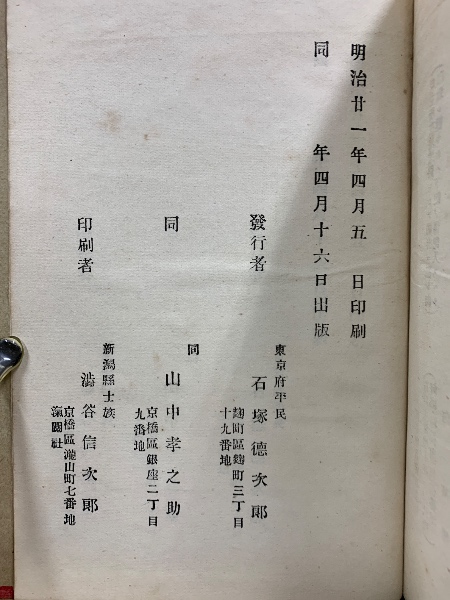 明治廿一年四月五 日印刷
同 年四月十六日出版
發行者
東京府平民
石塚德次郎
麹町區麹町三丁目
十九番地
同
同
山中孝之助
京橋區銀座二丁目
九番地
印刷者
新潟縣士族
澁谷信次郎
京橋區瀧山町七番地